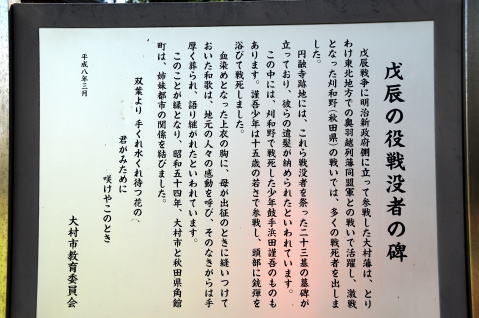 戊辰の役戦没者の碑
戊辰戦争に明治新政府側に立って参戦した大村藩は、とり
わけ東北地方での奥羽越列藩同盟軍との戦いで活躍し、激戦
となった刈和野(秋田県)の戦いでは、多くの戦死者を出しま
した。
円融寺跡地には、これら戦没者を祭った二十三基の墓碑が
立っており、彼らの遺髪が納められたといわれています。
この中には、刈和野で戦死した少年鼓手浜田謹吾のものも
あります。謹吾少年は十五歳の若さで参戦し、頭部に銃弾を
浴びて戦死しました。
血染めとなった上衣の胸に、母が出征のときに縫いつけて
おいた和歌は、地元の人々の感動を呼び、そのなきがらは手
厚く葬られ、語り継がれたといわれています。
このことが縁となり、昭和五十四年、大村市と秋田県角館
町は、姉妹都市の関係を結びました。
双葉より手くれ水くれ待つ花の
君がみために
咲けやこのとき
平成八年三月
大村市教育委員会